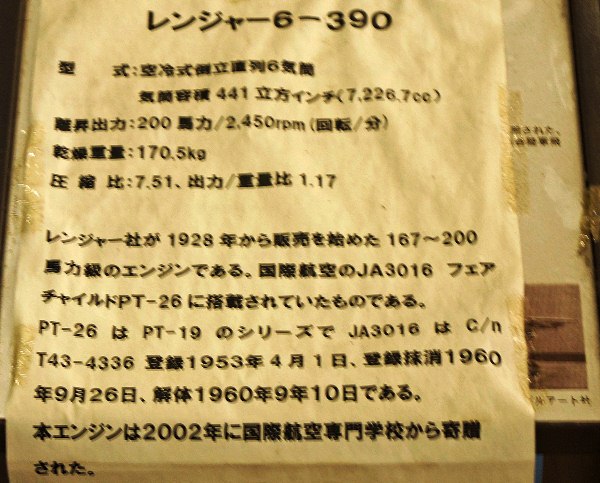 レンジャー6-390
型　　式:空冷式倒立直列6気筒
気筒容積 441立方インチ(7,226.7cc)
離昇出力:200馬力/2,450rpm(回転/分)
乾燥重量:170.5kg
圧 縮 比:7.51、出力/重量比 1.17
レンジャー社が 1928 年から販売を始めた 167～200
馬力級のエンジンである、国際航空のJA3016 フェア
チャイルドPT-26に搭載されていたものである。
PT-26 は PT-19 のシリーズで JA3016 は C/n
T43-4336 登録1953年4月1日、登録抹消1960
年9月26日、解体1960年9年10日である。
本エンジンは2002年に国際航空専門学校から寄贈
された。
された、
ルアート社